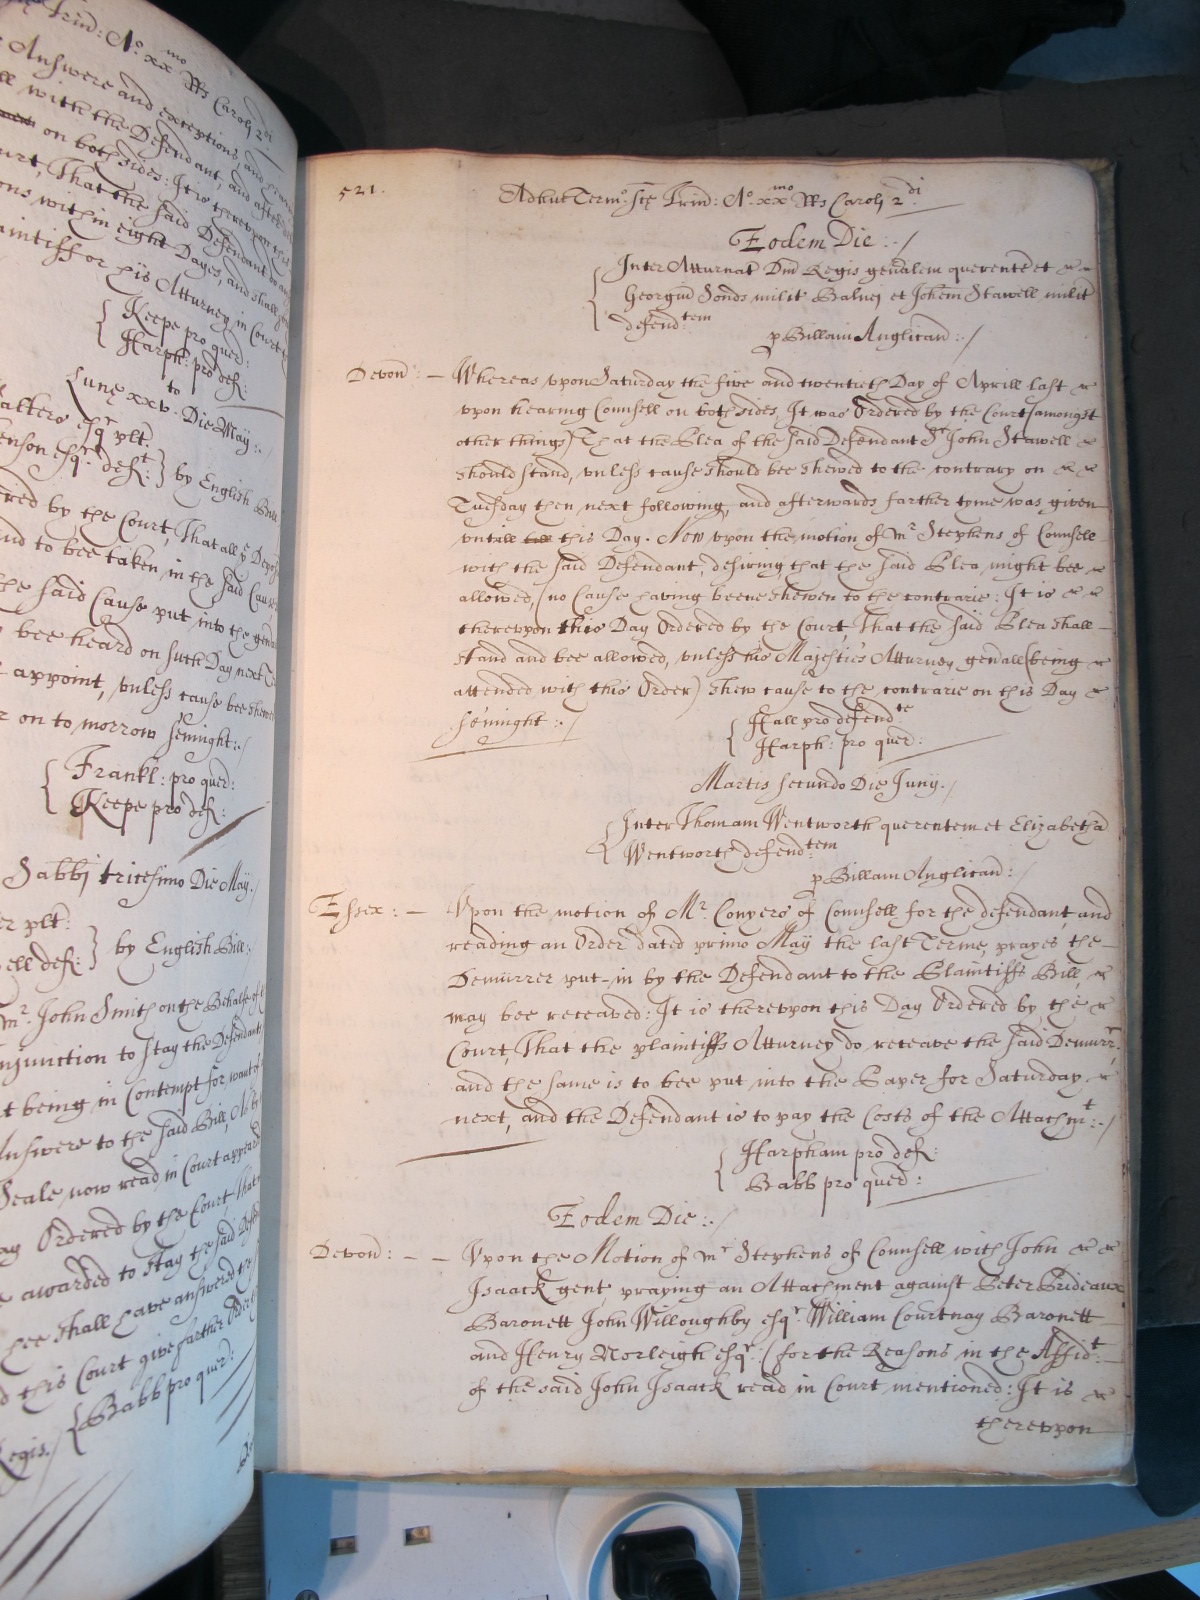 Trin: Ao. xxmo Rs Caroli 2di
Answere and exceptions, and
with the Defendant, and after
on both sides: It is therevpon this
Court, That the said Defendant do
within eight Dayes, and shall
Plaintiff or his Atturney in Court
Keepe pro quer:
Harph: pro def:
to
Lune xxv. Die May:
Walters esqr plt.
esqr. deft: } by English Bill
Ordered by the Court, That all ye Depos
and to bee taken in the said Cause
the said Cause put into the gen
bee heard on such Day next
appoint, vnless cause bee shewed
on to morrow sennight:/
Frankl: pro quer:
Keepe pro def:
Sabbi tricesimo Die May./
plt:
def: } by English Bill:
Mr. John Smith on the Behalfe of
Injunction to stay the Defendants
being in Contempt for want of
Answere to the said Bill,
Seale now read in Court
Day Ordered by the Court, That
awarded to stay the said
hee shall have answered the
this Court give farther Order
Babb pro quer:
Regis./
521.
Adhuc Termo. Ste Trind: Ao. xxmo Rs Caroli 2di
Eodem Die :./
Inter Atturnat Dni Regis genalem querentē et
Georgiū Sonds milit Balnei et Johem Stawell milit
defendtem
p Billam Anglicanā :./
Devoñ : — Whereas vpon Saturday the five and twentieth Day of Aprill last
vpon hearing Counsell on both sides, It was Ordered by the Court (amongst
other things) That the Plea of the said Defendant Sr John Stawell
should stand, vnless cause should bee shewed to the contrary on
Tuesday then next following, and afterwards farther tyme was given
vntill till this Day. Now vpon the motion of Mr Stephens of Counsell
with the said Defendant, desiring that the said Plea might bee
allowed, (no Cause having beene shewen to the contrarie: It is
therevpon this Day Ordered by the Court, That the said Plea shall
stand and bee allowed, vnless his Majesties Atturney genall (being
attended with this Order) shew cause to the contrarie on this Day
sennight :./
Hall pro defendte
Harph: pro quer:
Martis secundo Die Junij./
Inter Thomam Wentworth querentem et Elizabetha
Wentworth defendtem
p Billam Anglicanā :
Essex : — Vpon the motion of Mr. Conyers of Counsell for the defendant, and
reading an Order dated primo May the last Terme, prayes the
Demurrer put-in by the Defendant to the Plaintiffs Bill,
may bee receaved: It is therevpon this Day Ordered by the
Court That the plaintiffs Atturney do receave the said Demurrr.
and the same is to bee put into the Paper for Saturday
next, and the Defendant is to pay the Costs of the Attachmt:./
Harpham pro def:
Babb pro quer :
Eodem Die :./
Devoñ : — — Vpon the Motion of Mr Stephens of Counsell with John
Isaack gent, praying an Attachment against Peter Prideaux
Baronett John Willoughby esqr. William Courtnay Baronett
and Henry Norleigh esqr: (for the Reasons in the Affidt:
of the said John Isaack read in Court mentioned: It is
therevpon